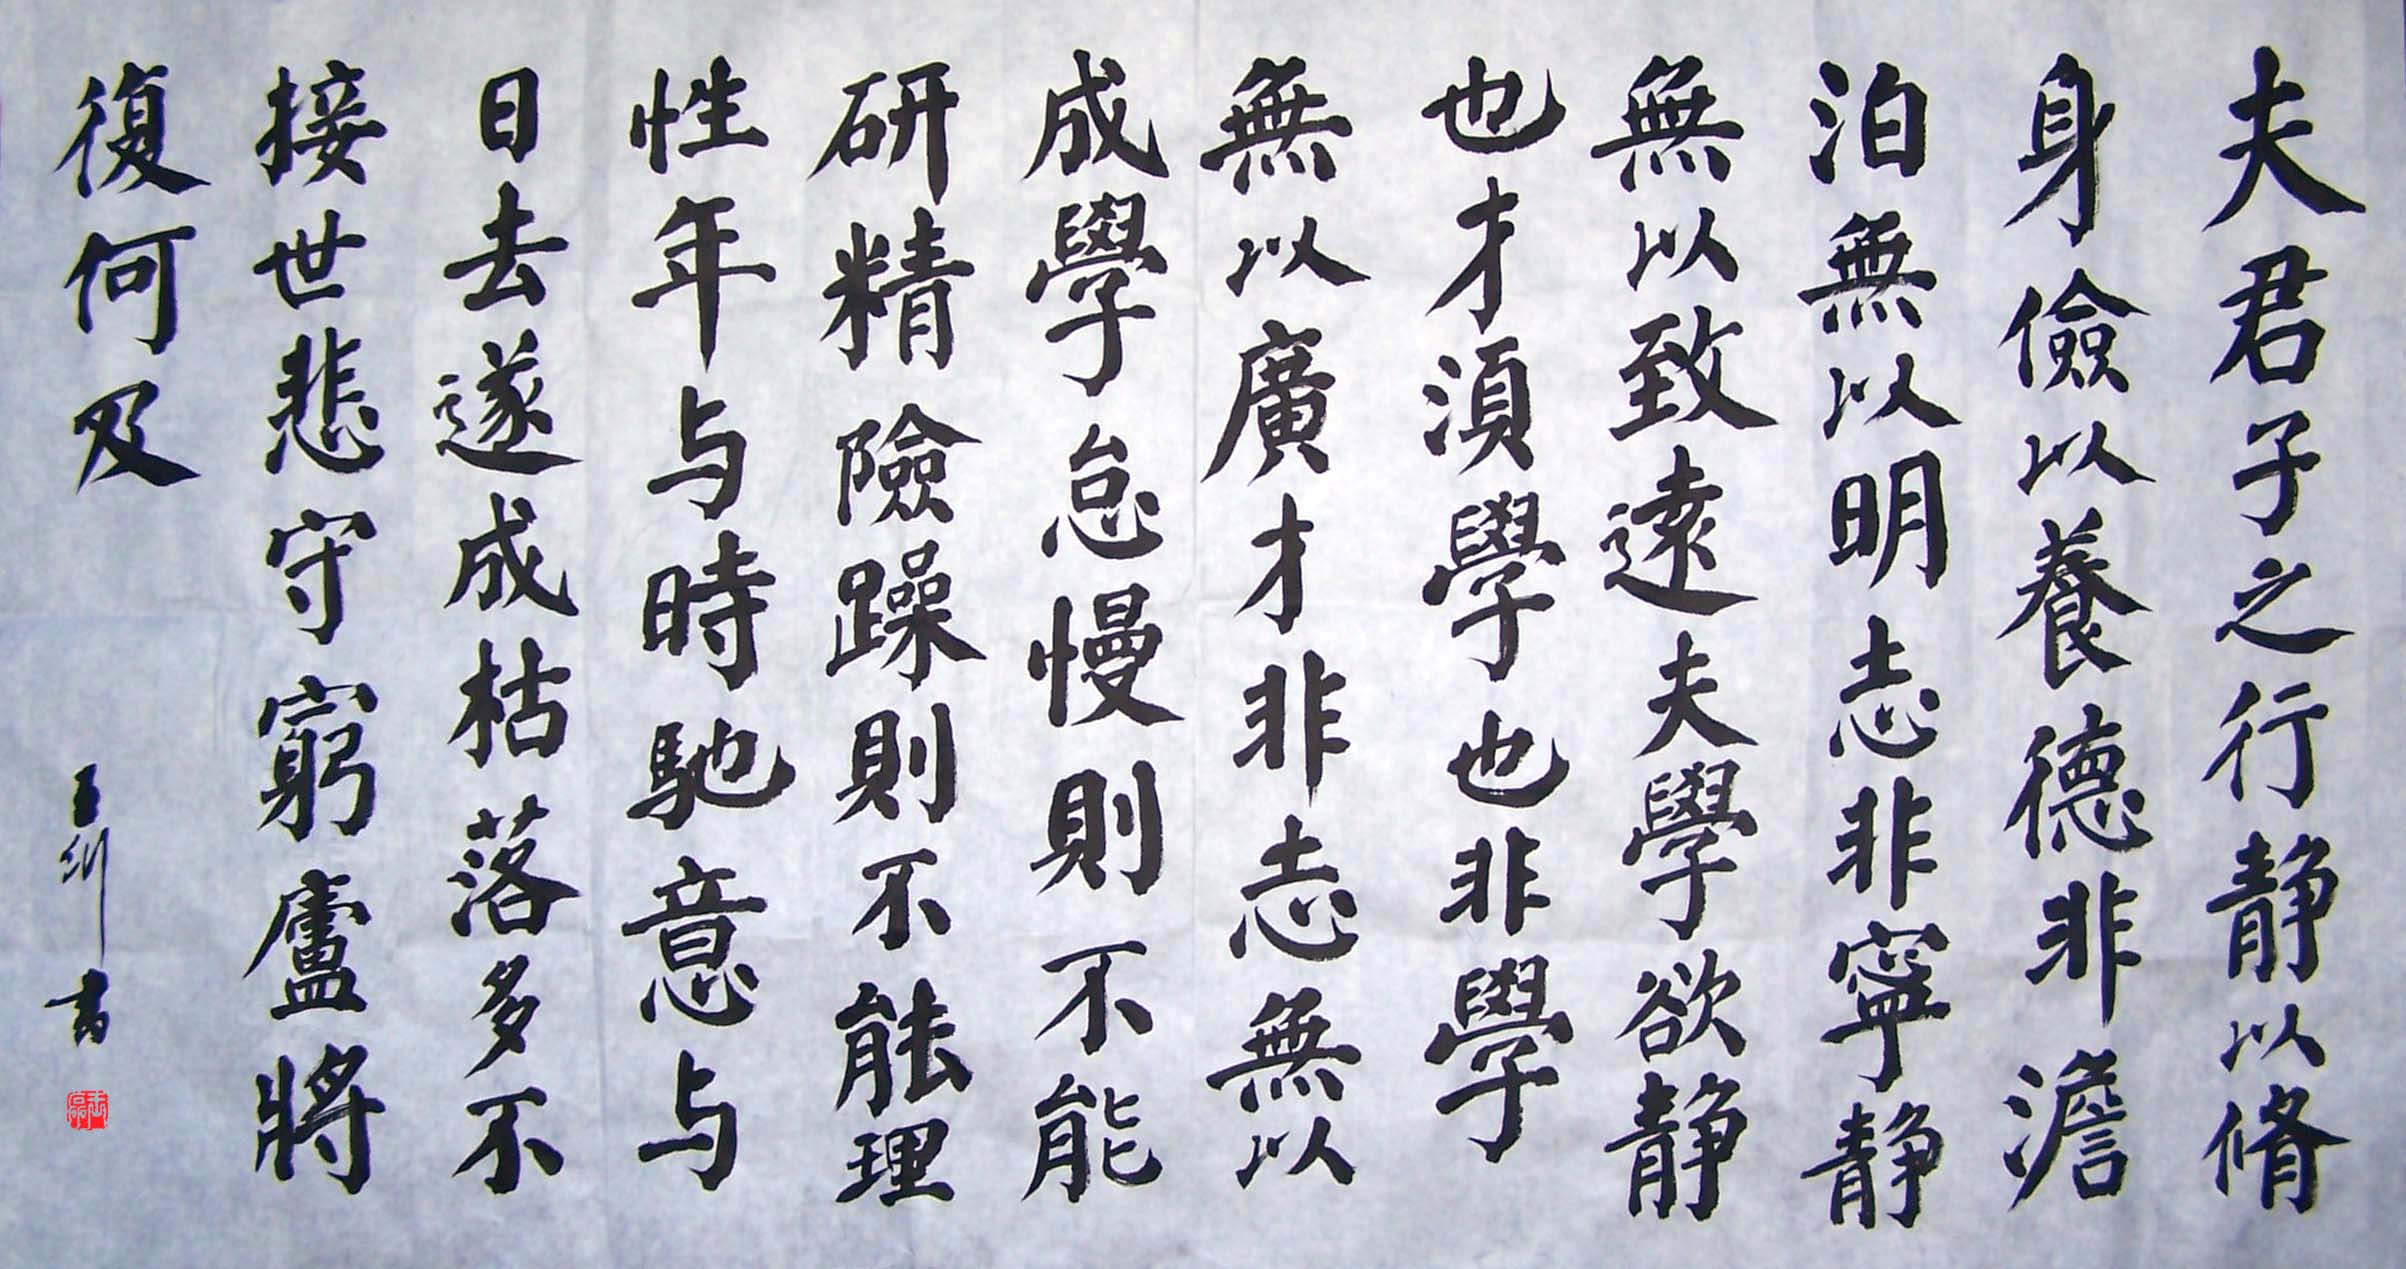 夫君子之行静以脩
身儉以養德非澹
泊無以明志非寧静
無以致遠夫學欲静
也才須學也非學
無以廣才非志無以
成學怠慢則不能
研精險躁則不能理
性年与時馳意与
日去遂成枯落多不
接世悲守窮廬將
復何及
書